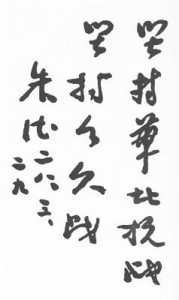 坚持華北抗战
坚持久战
朱德二八、三、
二九